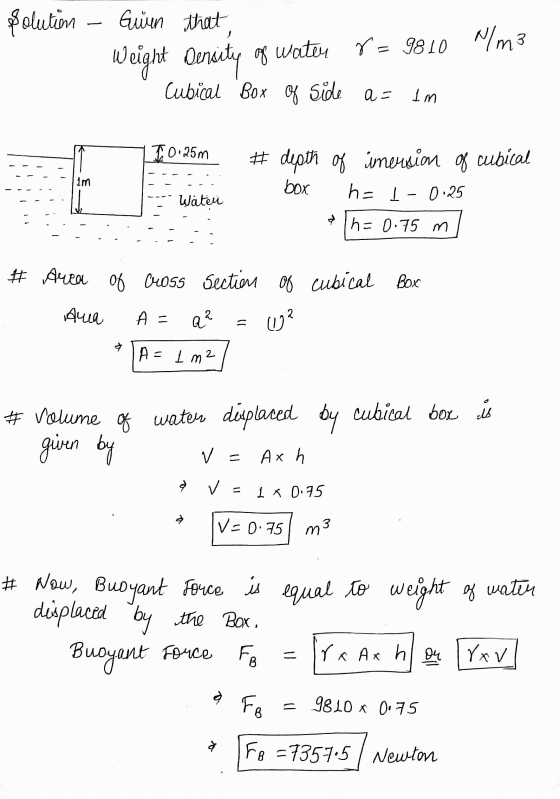 Solution - Given that,
Weight Density of water γ = 9810 N/m3
Cubical Box of Side a = 1m
0.25m
1m
Water
# depth of imersion of cubical
box h = 1 - 0.25
→ h = 0.75 m
# Area of cross section of cubical Box
Area A = a² = (1)²
→ A = 1 m²
# Volume of water displaced by cubical box is
given by
V = A × h
→ V = 1 × 0.75
→ V = 0.75 m³
# Now, Buoyant Force is equal to weight of water
displaced by the Box.
Buoyant Force F_B = γ × A × h or γ × V
→ F_B = 9810 × 0.75
→ F_B = 7357.5 Newton